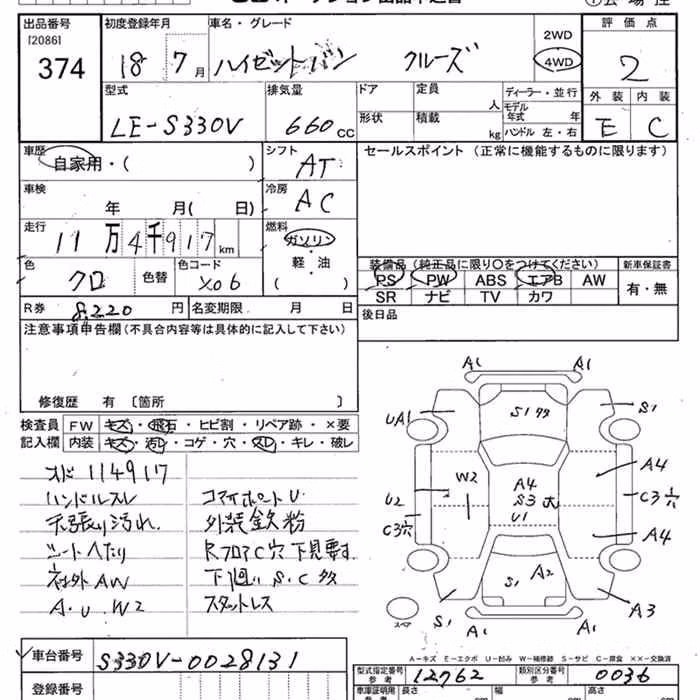 出品番号 [2086] 374
初度登録年月 18 7月
車名・グレード ハイゼットバン クルーズ
2WD 4WD
評価点 2
外装 E 内装 C
型式 LE-S330V
排気量 660 CC
ドア 形状
定員 人
積載 kg
ディーラー・並行
モデル年式 年
ハンドル 左・右
車歴 自家用・( )
シフト AT
セールスポイント (正常に機能するものに限ります)
車検 年 月( 日)
冷房 AC
走行 11万4千917km
燃料 ガソリン・軽・油 ( )
色 クロ 色替 色コード X06
装備品 (純正品に限り○をつけてください)
PS PW ABS エアB AW
SR ナビ TV カワ
新車保証書 有・無
R券 8,220円 名変期限 月 日
後日品
注意事項申告欄(不具合内容等は具体的に記入して下さい)
修復歴 有 〔箇所 〕
検査員 FW キズ・飛石・ヒビ割・リペア跡・×要
記入欄 内装 キズ・汚レ・コゲ・穴・スレ・キレ・破レ
メド 114917
ハンドルスレ コマイボートU
天張り汚れ 外装鉄粉
シートヘたり RフロアC穴下見要す
社外AW 下廻りS・C多
A・U・W2 スタットレス
A1 A1
UA1 S1 S1
W2 A4 S3 U1 A4
U2 C3 C3
A4
S1 A2
S1 A1 A1 A3
スペア
A-キズ E-エクボ U-凹み W-補修跡 S-サビ C-腐食 XX-交換済
車台番号 S330V-0028131
型式指定番号 参考 12762
類別区分番号 参考 0036
登録番号
車庫証明用 参考 長さ cm 幅 cm 高さ cm